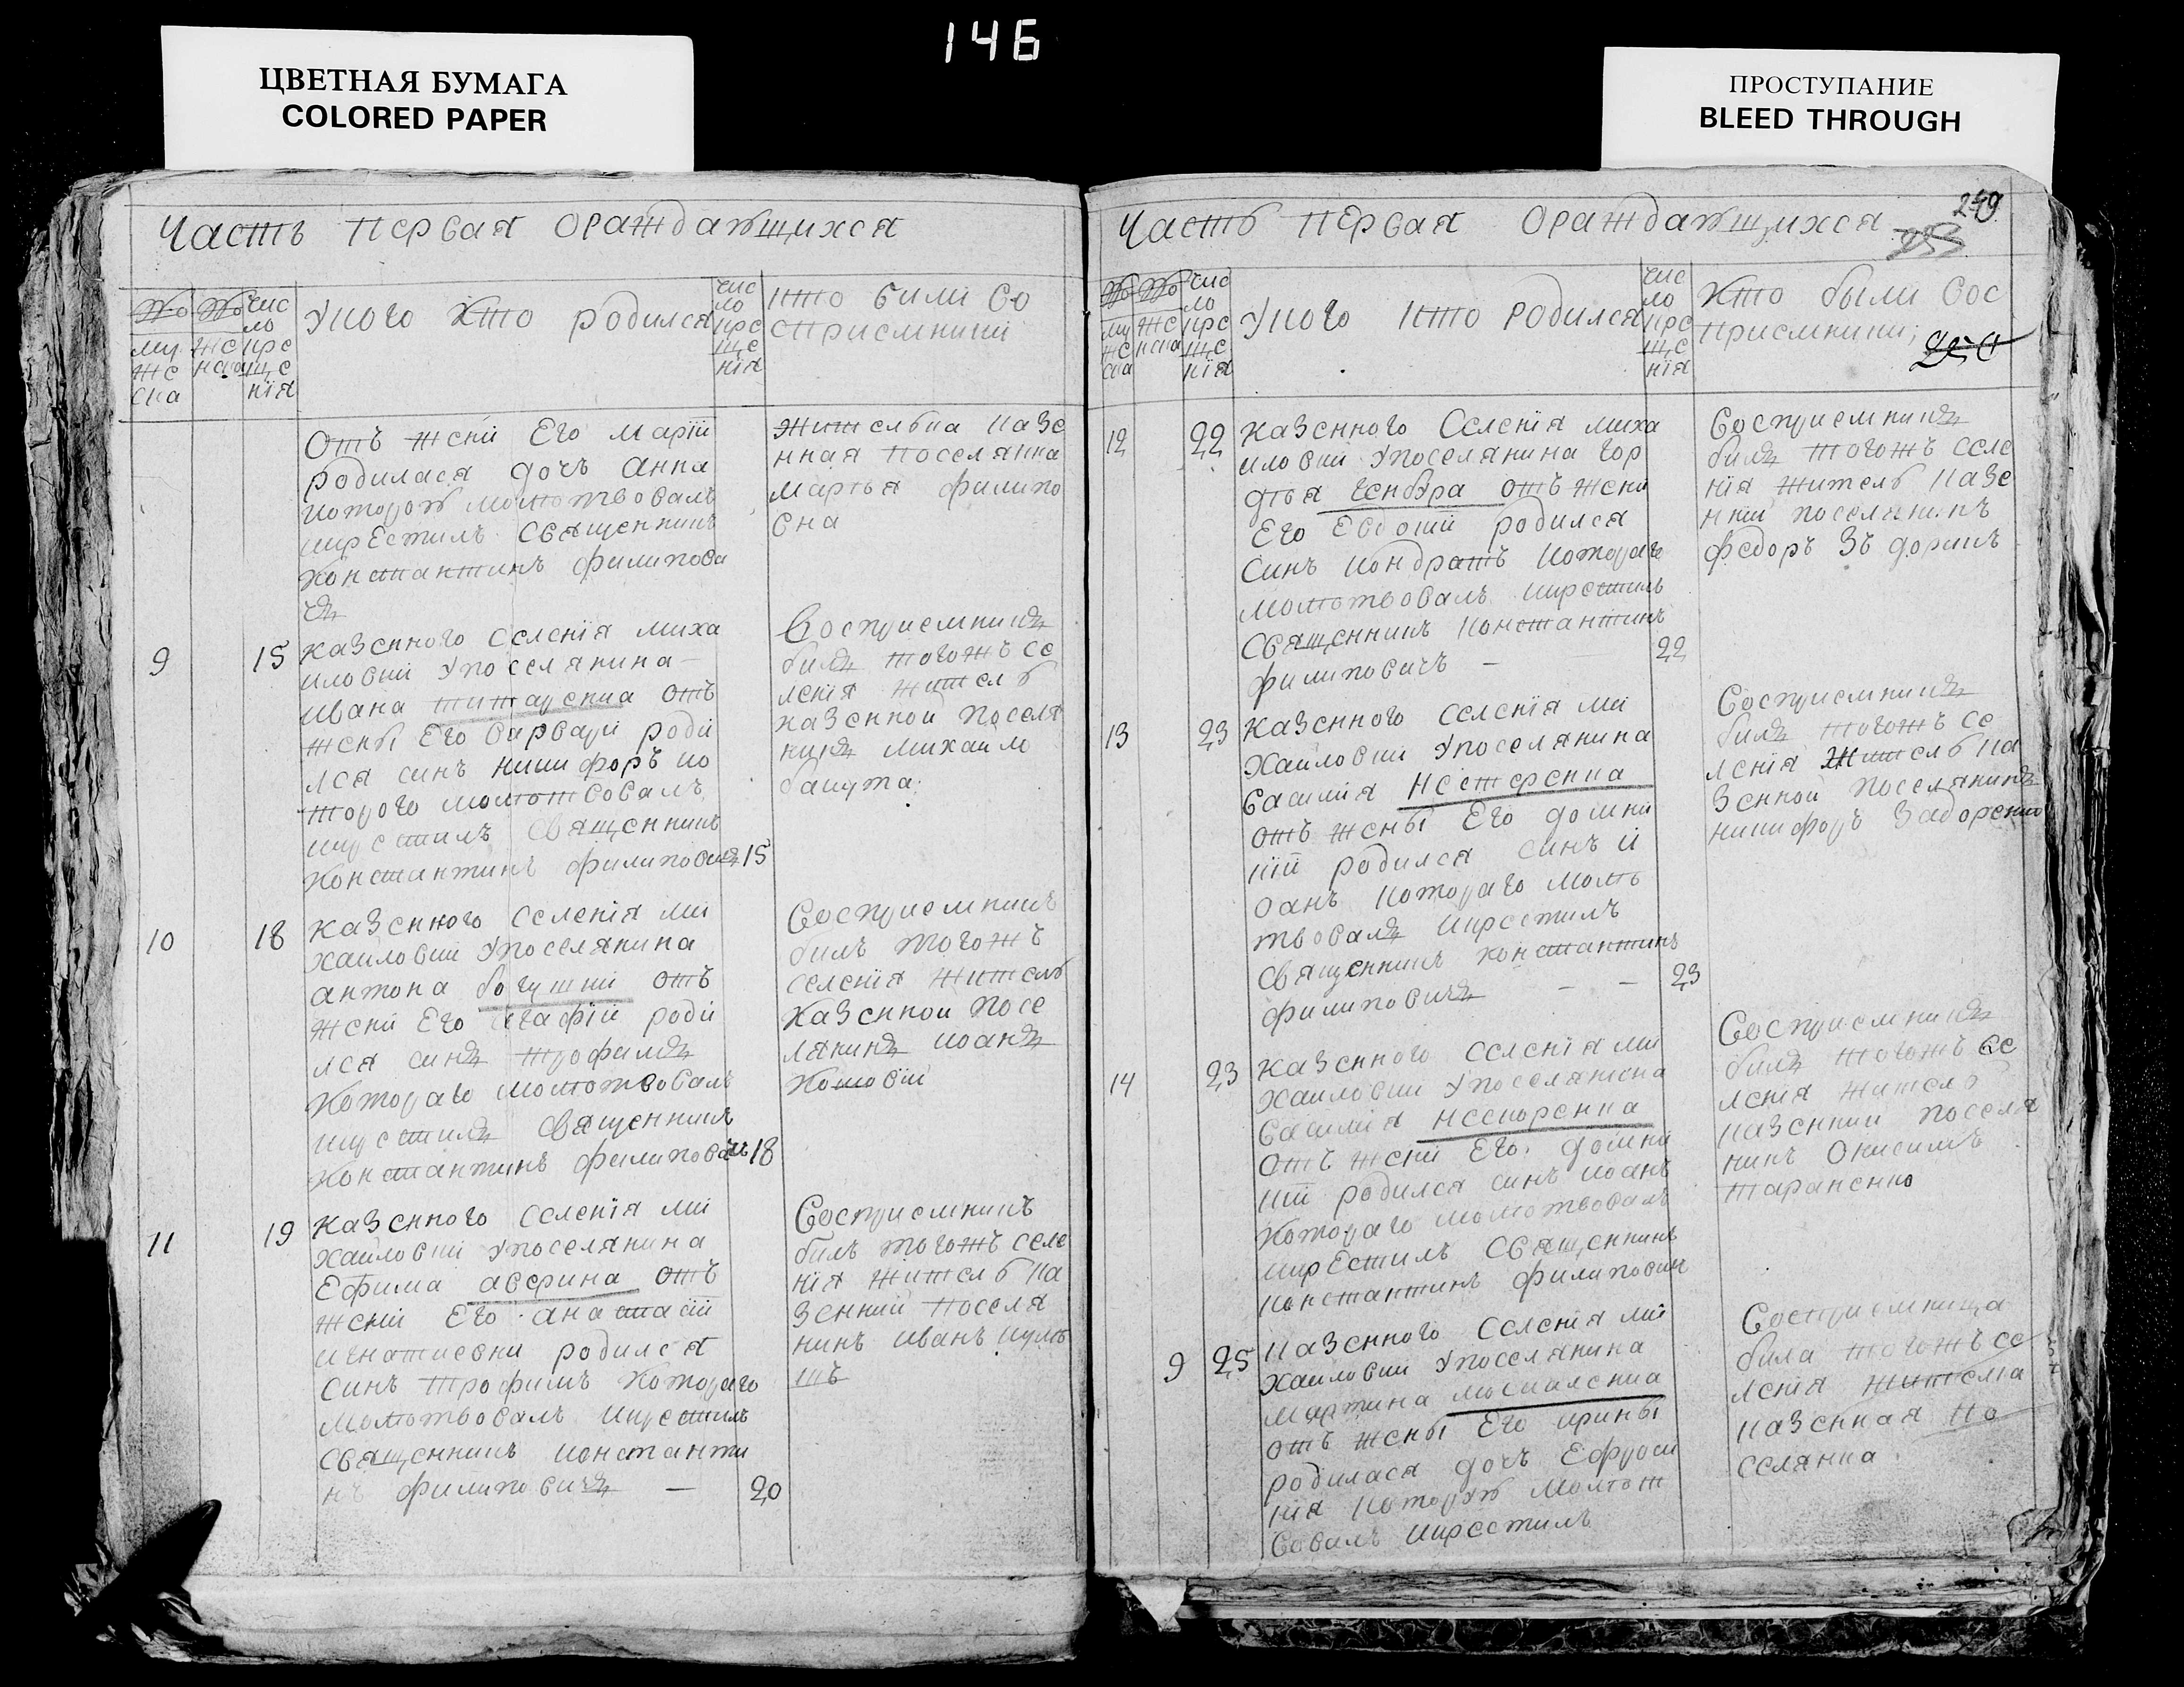 146
ЦВЕТНАЯ БУМАГА
COLORED PAPER
ПРОСТУПАНИЕ
BLEED THROUGH
Часть первая ораждающихся
№ муж ска
№ женска
число крещенїя
Укого Кто родился
число крещенїя
кто били восприемники
Отъ жени Его Марїи
родилася дочъ Анна
которою молитвовалъ
икрЕстилъ Священникъ
Константинъ Филипови
чъ
Жителька казе
нная поселянка
Марфа Филипо
вна
9
15
казенного селенїя Миха
иловки Упоселянина
Ивана Титаренка отъ
жены Его Варвари роди
лся синъ Никифоръ ко
торого молитвовалъ
икрестилъ Священникъ
Константинъ Филиповичъ
15
Восприемникъ
билъ тогожъ се
ленїя житель
казенной поселя
нинъ Михайло
10
18
казенного селенїя Ми
хайловки Упоселянина
Антона отъ
жени Его Агафїи роди
лся синъ Трофимъ
Котораго молитвовалъ
икрестилъ Священникъ
Константинъ Филиповичъ
18
Восприемникъ
билъ тогожъ
селенїя житель
Казенной посе
лянинъ Иоанъ
11
19
казенного селенїя Ми
хайловки Упоселянина
Ефима Аверина отъ
жени Его Анастасїи
Игнатиевни родился
синъ Трофимъ Котораго
молитвовалъ икрестилъ
Священникъ Константи
нъ Филиповичъ —
20
Восприемникъ
билъ тогожъ селе
нїя житель ка
зенний поселя
нинъ Иванъ
Часть первая ораждающихся
249
253
№ муж ска
№ женска
число крещенїя
Укого кто родился
число крещенїя
Кто были вос
приемники;
250
12
22
казенного селенїя Миха
иловки Упоселянина Гор
дѣя отъ жени
Его Евдокїи родился
Синъ Кондратъ котораго
молитвовалъ икрестилъ
Священникъ Константинъ
Филиповичъ —
22
Восприемникъ
билъ тогожъ селе
нїя житель казе
нний поселянинъ
Федоръ
13
23
казенного селенїя Ми
хайловки Упоселянина
Василїя Нестеренка
отъ жены Его Домни
кїи родился синъ И
оанъ котораго моли
твовалъ икрестилъ
Священникъ Константинъ
Филиповичъ — —
23
Восприемникъ
билъ тогожъ се
ленїя житель ка
зенной поселянинъ
Никифоръ
14
23
казенного селенїя Ми
хайловки Упоселянина
Василїя
отъ жени Его Домни
кїи родился синъ Иоанъ
Котораго молитвовалъ
икрЕстилъ Священникъ
Константинъ Филипович
Восприемникъ
билъ тогожъ се
ленїя житель
казенний поселя
нинъ Онисимъ
Тараненко
9
25
казенного селенїя Ми
хайловки Упоселянина
Мартина Москаленка
отъ жены Его Ирины
родилася дочъ Ефроси
нїя которую молитв
овалъ икрестилъ
Восприемница
била тогожъ се
ленїя жителка
казенная по
селянка